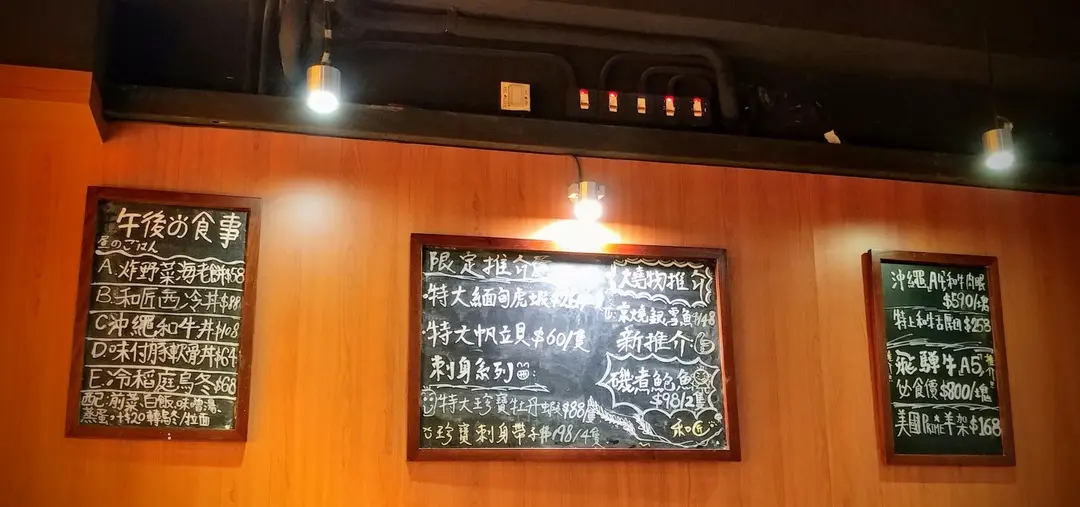 午後お食事
昼のごはん
A.炸野菜海老餅$58
B.和匠西冷丼$88
C.沖繩和牛丼$108
D.味付豚軟骨丼$64
E.冷稻庭烏冬$68
配:前菜.白飯.味噌湯.
蒸蛋。+$20轉烏冬/拉面
限定推介
・特大緬甸虎蝦
・特大帆立貝$60/隻
刺身系列
特大珍寶牡丹蝦$88/隻
珍寶刺身帶子$198/4隻
燒物推介
京燒銀雪魚$148
新推介:
磯煮鮑魚
$98/2隻
和匠
沖繩A4和牛肉眼
$590/塊
特上和牛舌
$258
飛驒牛A5
必食價$800/塊
美國PRIME羊架$168